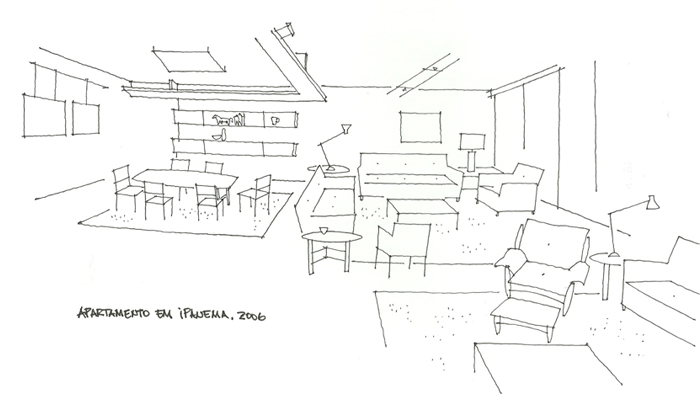 APARTAMENTO EM iPANEMA. 2006